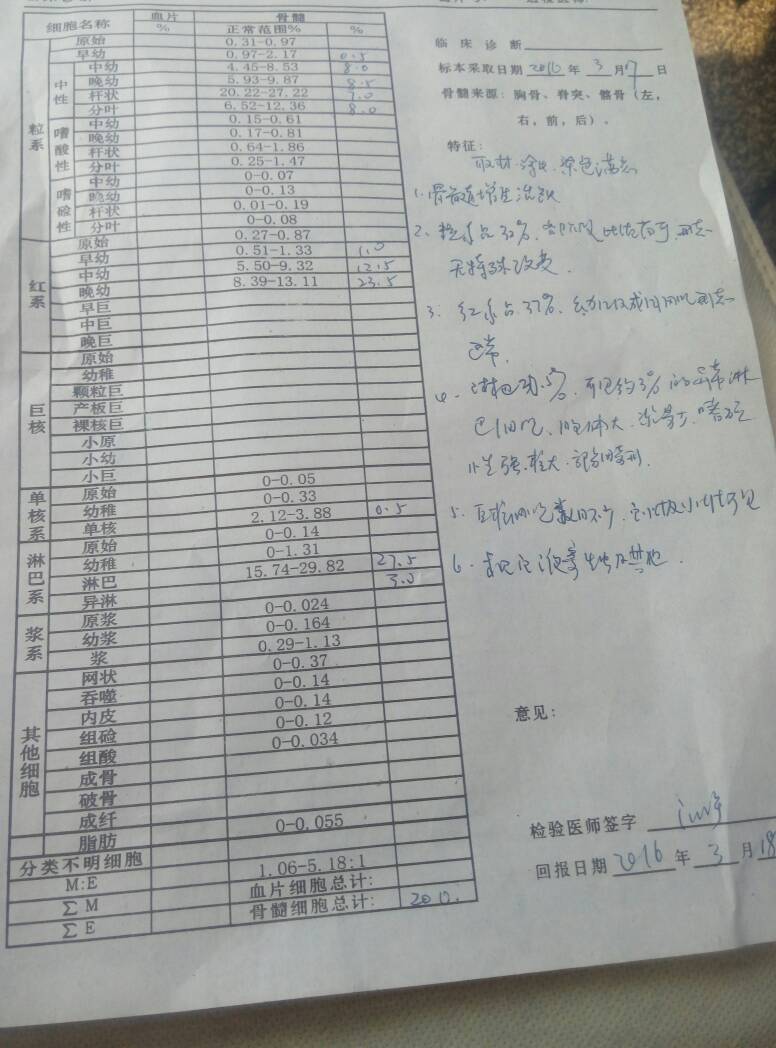 细胞名称 血片 骨髓
% 正常范围% %
粒系 原始 0.31-0.97
早幼 0.97-2.17 0.5
中性 中幼 4.45-8.53 8.0
晚幼 5.93-9.87 8.5
杆状 20.22-27.22 7.0
分叶 6.52-12.36 8.0
嗜酸性 中幼 0.15-0.61
晚幼 0.17-0.81
杆状 0.64-1.86
分叶 0.25-1.47
嗜硷性 中幼 0-0.07
晚幼 0-0.13
杆状 0.01-0.19
分叶 0-0.08
红系 原始 0.27-0.87
早幼 0.51-1.33 1.0
中幼 5.50-9.32 12.5
晚幼 8.39-13.11 23.5
早巨
中巨
晚巨
巨核 原始
幼稚
颗粒巨
产板巨
裸核巨
小原
小幼
小巨
单核系 原始 0-0.05
幼稚 0-0.33
单核 2.12-3.88 0.5
淋巴系 原始 0-0.14
幼稚 0-1.31
淋巴 15.74-29.82 27.5
异淋 3.0
浆系 原浆 0-0.024
幼浆 0-0.164
浆 0.29-1.13
其他细胞 网状 0-0.37
吞噬 0-0.14
内皮 0-0.14
组硷 0-0.12
组酸 0-0.034
成骨
破骨
成纤
脂肪 0-0.055
分类不明细胞
M:E 1.06-5.18:1
∑M 血片细胞总计:
∑E 骨髓细胞总计: 200.
临床诊断
标本采取日期 2016 年 3 月 17 日
骨髓来源：胸骨、脊突、髂骨（左，
右，前，后）。
特征：
取材、涂片、染色满意
1. 骨髓增生活跃
2. 粒系占32%，各阶段比值 形态
无特殊改变．
3. 红系占37%，
正常．
4. 淋巴 .5%，可见约3%的异常淋
巴细胞、胞体大、
5. 巨核细胞数 血小板
6.
意见：
检验医师签字
回报日期 2016 年 3 月 18